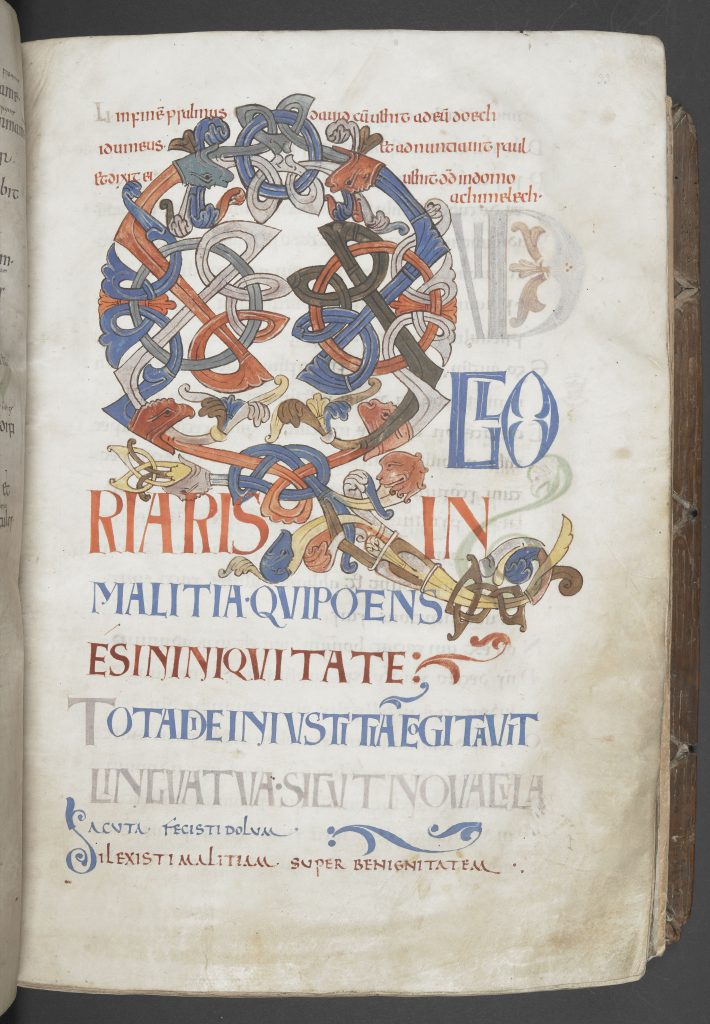 LI In finē psalmus dauid cū uenit ad eū doech
idumeus. et adnuntiauit saul
et dixit ei uenit dd in domo
achimelech.
QVID
GLO
RIARIS IN
MALITIA·QVI POTENS
ES IN INIQVITATE:
TOTA DIE INIVSTITIĀ COGITAVIT
LINGVA TVA·SICVT NOVACVLA
ACUTA· FECISTI DOLUM·
DILEXISTI MALITIAM SUPER BENIGNITATEM·